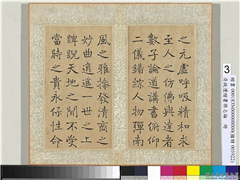 之元虛呼吸精和求
至人之仿佛與達者
數子論道講書俯仰
二儀錯綜人物彈南
風之雅操發清商之
妙曲逍遙一世之上
睥睨天地之間不受
當時之責永保性命
3